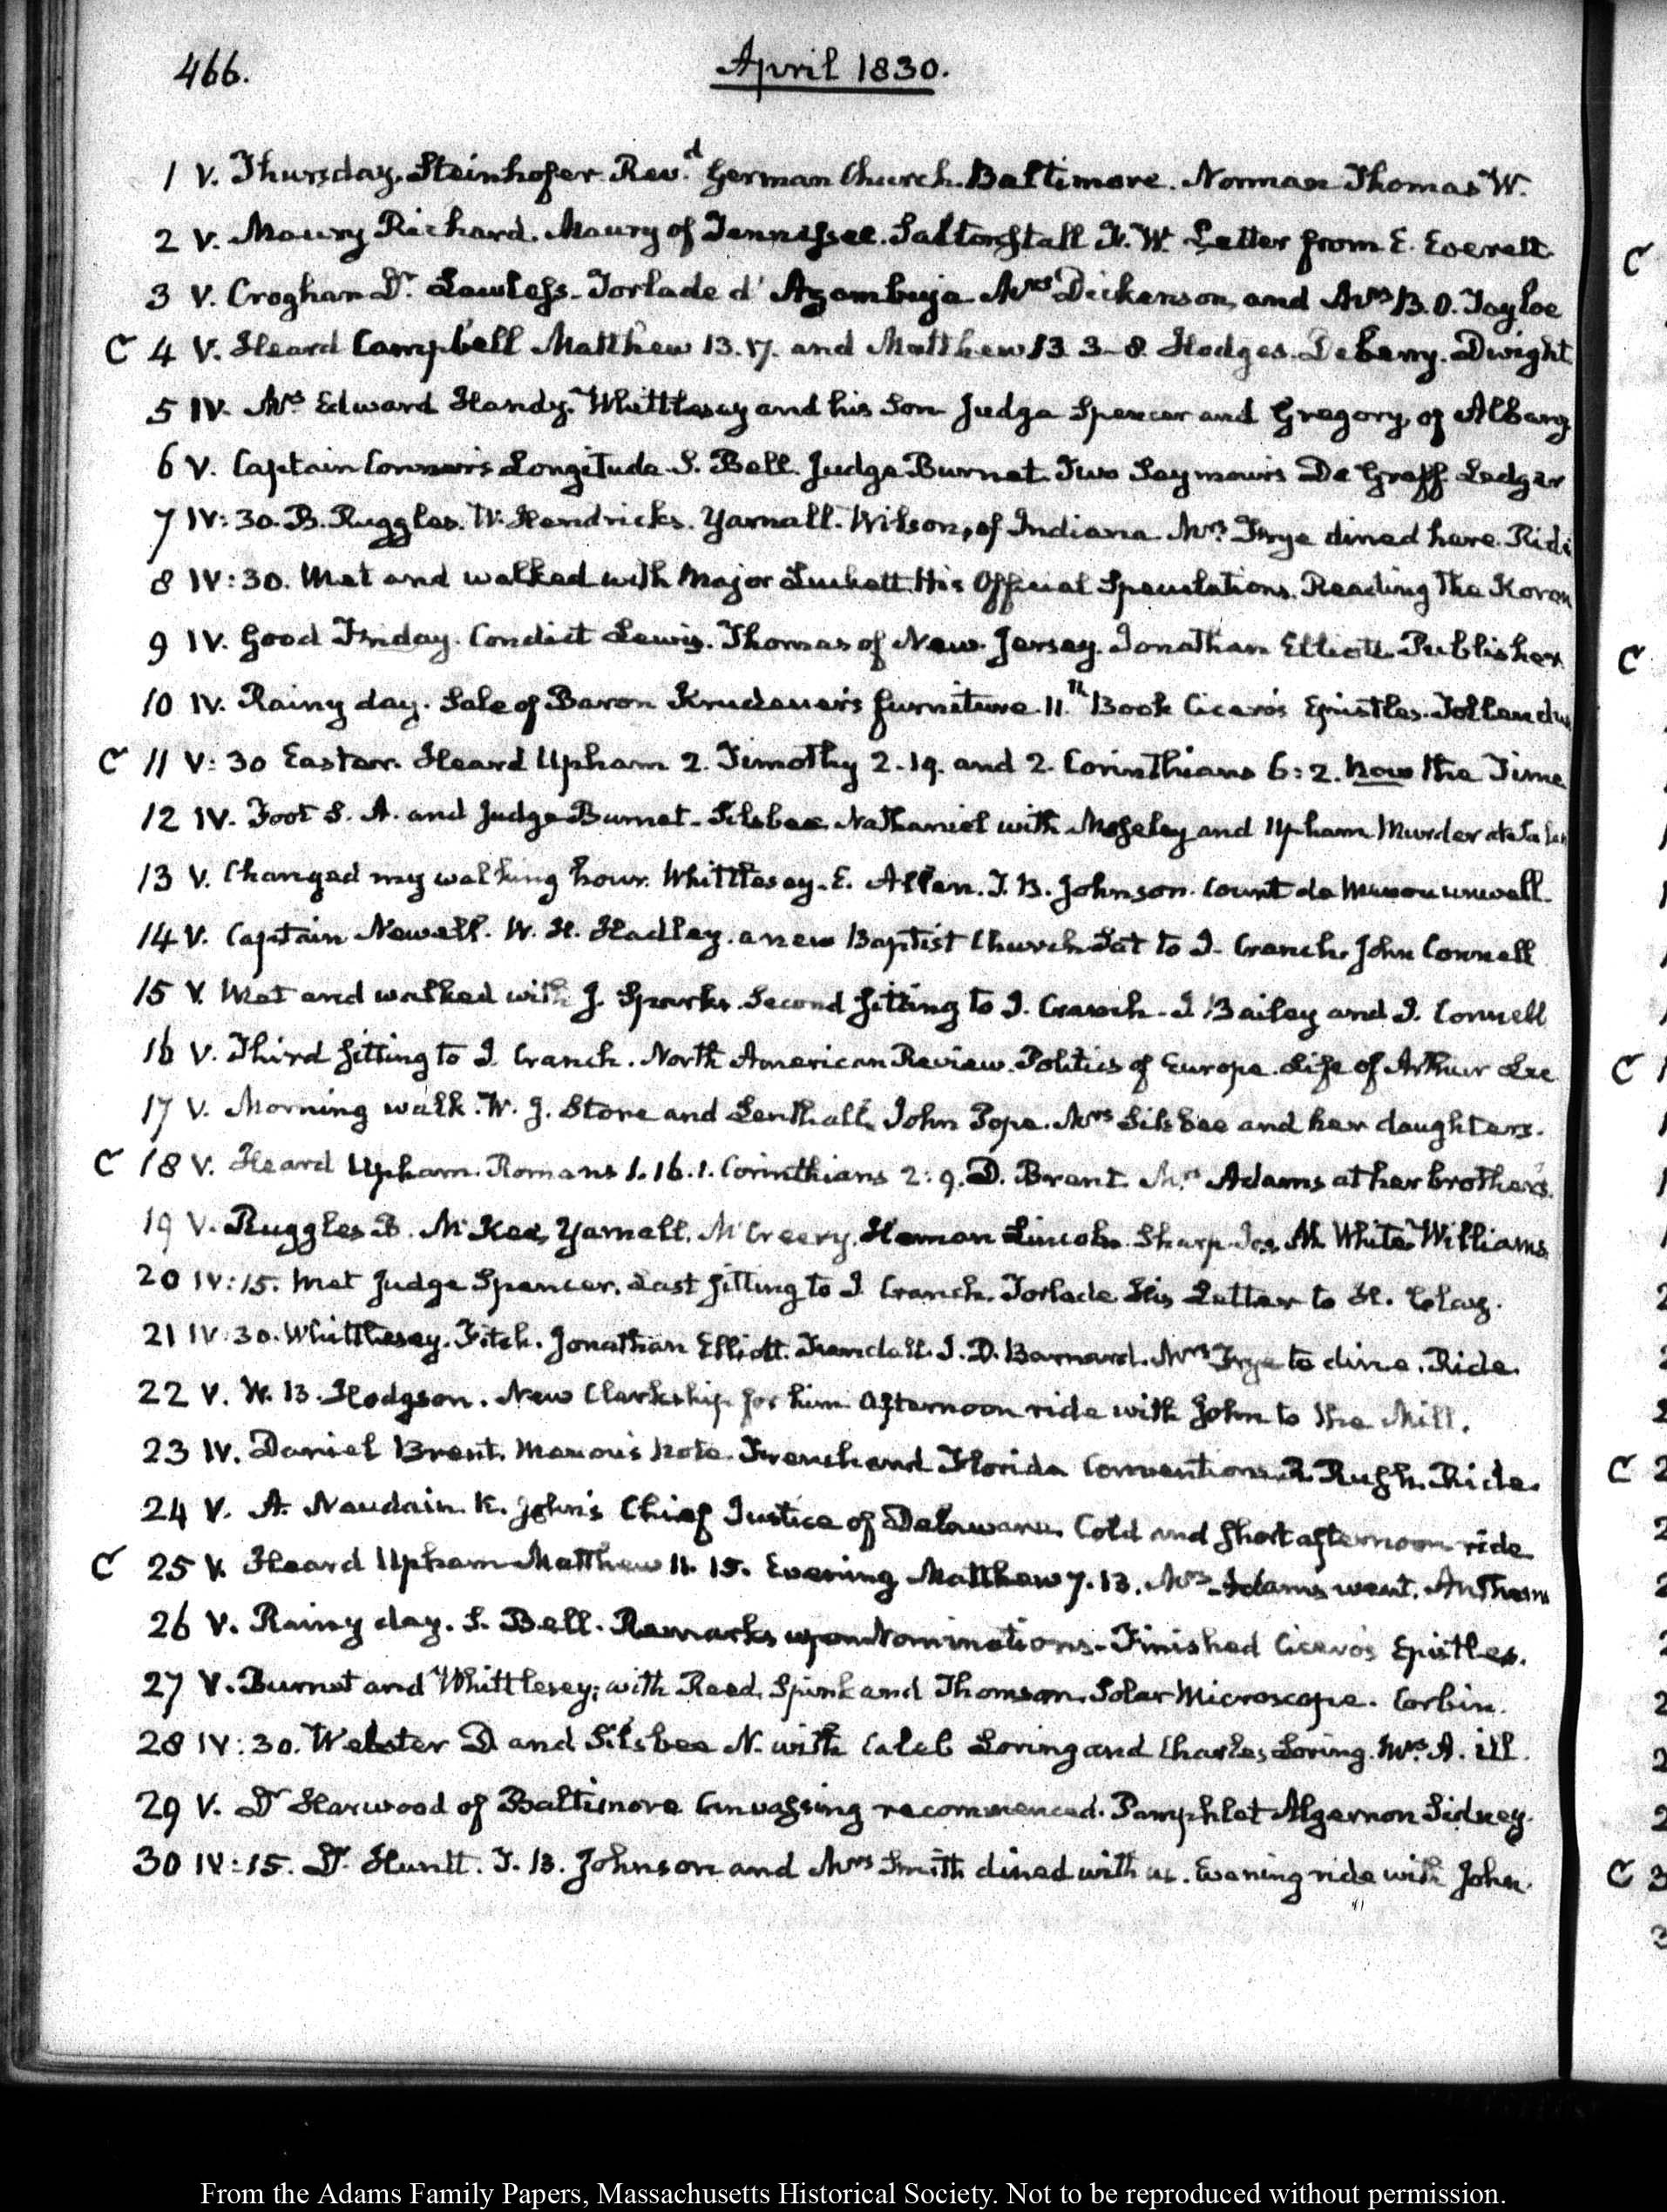 466.
April 1830.
1 V. Thursday. Steinhofer Rev.d German Church. Baltimore. Norman Thomas W.
2 V. Maury Richard. Maury of Tennessee. Saltonstall N. W. Letter from E. Everett.
3 V. Croghan Dr. Lawless. Torlade d'Azambuja Mrs Dickenson, and Mrs B. O. Tayloe
C 4 V. Heard Campbell Matthew 13. 17. and Matthew 13 3-8. Hodges. Deberry. Dwight
5 IV. Mrs Edward Handy. Whittlesey and his Son Judge Spencer and Gregory, of Albany
6 V. Captain Connor's Longitude S. Bell. Judge Burnet. Two Seymours De Graff Ledyar
7 IV:30. B. Ruggles. W. Hendricks. Yarnall. Wilson, of Indiana. Mrs Frye dined here. Ride
8 IV:30. Met and walked with Major Luckett. His Official Speculations. Reading the Koran
9 IV. Good Friday. Condict Lewis. Thomas of New Jersey. Jonathan Elliott Publisher
10 IV. Rainy day. Sale of Baron Krudener's furniture 11.th Book Cicero's Epistles.
C 11 V:30 Easter. Heard Upham 2. Timothy 2.19. and 2. Corinthians 6:2. now the Time
12 IV. Foot S. A. and Judge Burnet. Silsbee Nathaniel with Moseley and Upham Murder at Salem
13 V. Changed my walking hour. Whittlesey. E. Allen. J. B. Johnson. Count de Menou unwell.
14 V. Captain Newell. W. H. Hadley. a new Baptist Church. Sat to J. Cranch. John Connell
15 V. Met and walked with J. Sparks. Second sitting to J. Cranch. J Bailey and J. Connell
16 V. Third sitting to J. Cranch. North American Review. Politics of Europe. Life of Arthur Lee
17 V. Morning walk. W. J. Stone and Lenthall. John Pope. Mrs Silsbee and her daughters.
C 18 V. Heard Upham. Romans 1. 16. 1. Corinthians 2:9. D. Brent. Mrs Adams at her brother's.
19 V. Ruggles B. McKee, Yarnell. McCreery. Heman Lincoln. Sharp Jos. M. White Williams
20 IV:15. Met Judge Spencer. Last sitting to J Cranch. Torlade His Letter to H. Clay.
21 IV:30. Whittlesey. Fitch. Jonathan Elliott. Trundall. J. D. Barnard. Mrs Frye to dine. Ride.
22 V. W. B. Hodgson. New Clerkship for him. Afternoon ride with John to the Mill.
23 IV. Daniel Brent. Menou's Note. French and Florida Conventions. R Rush. Ride.
24 V. A. Naudain. K. John's Chief Justice of Delaware. Cold and short afternoon ride
C 25 V. Heard Upham Matthew 11. 15. Evening Matthew 7. 13. Mrs Adams went. Anthem
26 V. Rainy day. S. Bell. Remarks upon Nominations. Finished Cicero's Epistles.
27 V. Burnet and Whittlesey; with Reed, Spink and Thomson. Solar Microscope. Corbin.
28 IV:30. Webster D and Silsbee N. with Caleb Loring and Charles Loring. Mrs A. ill.
29 V. Dr Harwood of Baltimore Canvassing recommenced. Pamphlet Algernon Sidney.
30 IV:15. Dr Huntt. J. B. Johnson and Mrs Smith dined with us. Evening ride with John.
From the Adams Family Papers, Massachusetts Historical Society. Not to be reproduced without permission.